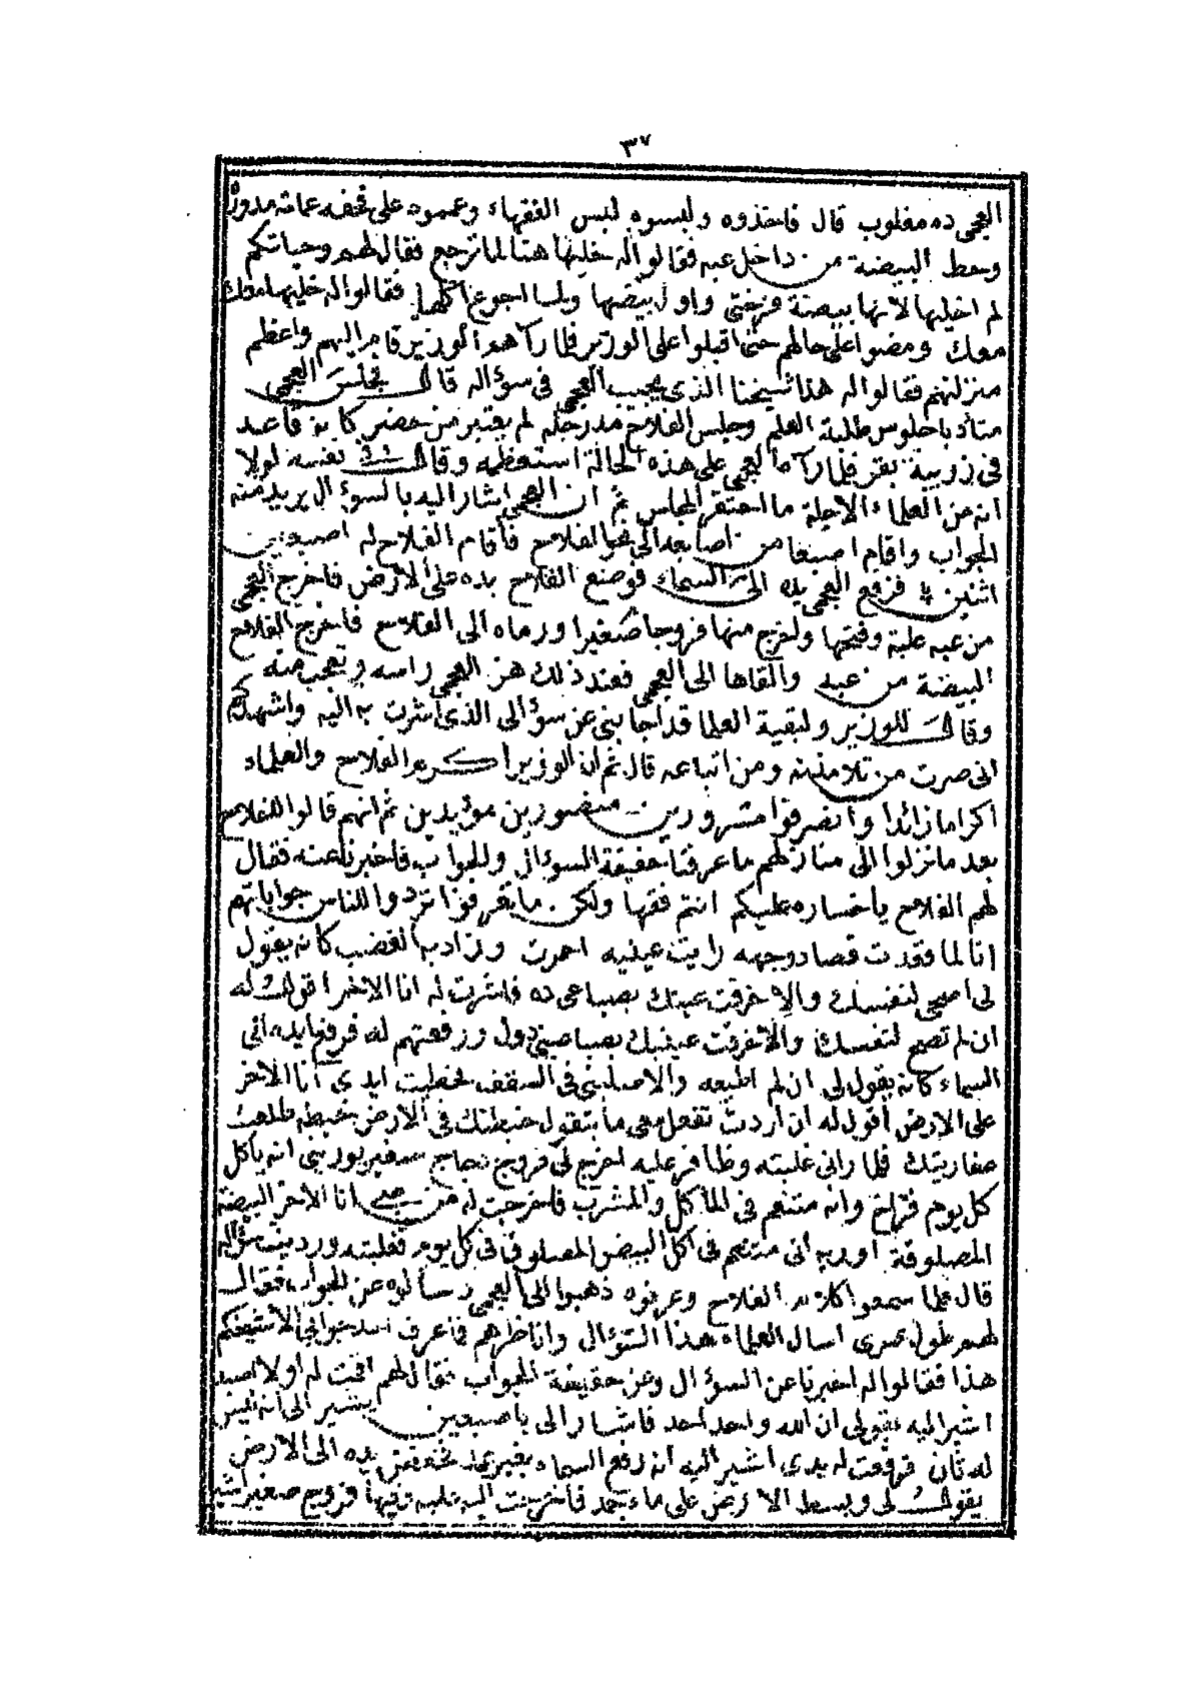 ٣٧
العجمى ده مغلوب قال فاخذوه ولبسوه لبس الفقهاء وعمموه على قحفه عمامه مدوره
وحط البيضة من داخل عبه فقالوا له خليها هنا لما ترجع فقال لهم وحياتكم
لم اخليها لانها بيضة فرختى واول بيضها ولما اجوع اكلها فقالوا له خليها معك
معك ومضوا على حالهم حتى اقبلوا على الوزير فلما راهم الوزير قام اليهم واعظم
منزلتهم فقالوا له هذا شيخنا الذى يجيب العجمى فى سؤاله قال فجلس العجمى
متأدبا جلوس طلبة العلم وجلس الفلاح مد رجله لم يعتبر من حضر كانه قاعد
فى زريبة بقر فلما راه العجمى على هذه الحالة استعظمه وقال فى نفسه لولا
انه من العلماء الاجلة ما احتقر المجلس ثم ان العجمى اشار اليه بالسؤال يريد منه
الجواب واقام اصبعا من اصابعه الى نحو الفلاح فأقام الفلاح له اصبعين
اثنين فرفع العجمى يده الى السماء فوضع الفلاح يده على الارض فاخرج العجمى
من عبه علبة وفتحها واخرج منها فروجا صغيرا ورماه الى الفلاح فاخرج الفلاح
البيضة من عبه والقاها الى العجمى فعند ذلك هز العجمى راسه وتعجب منه
وقال للوزير ولبقية العلما قد اجابنى عن سؤالى الذى اشرت به اليه واشهدكم
انى صرت من تلامذته ومن اتباعه قال ثم ان الوزير اكرم الفلاح والعلماء
اكراما زائدا وانصرفوا مسرورين منصورين مؤيدين ثم انهم قالوا للفلاح
بعد ما نزلوا الى منازلهم ما عرفنا حقيقة السؤال والجواب فاخبرنا عنه فقال
لهم الفلاح يا خساره عليكم انتم فقها ولكن ما تعرفوا تردوا للناس جواباتهم
انا لما قعدت قصاد وجهه رايت عينيه احمرت وزاد به الغضب كانه يقول
لى اصحى لنفسك والا خرقت عينك بصباعى ده فاشرت له انا الاخر اقول له
ان لم تصح لنفسك والا خرقت عينيك بصباعينى دول ورفعتهم له فرفع ايده الى
السماء كانه يقول لى ان لم اطيعه والا صلبنى فى السقف فحطيت ايدى انا الاخر
على الارض اقول له ان اردت تفعل معى ما بتقول خبطتك فى الارض خبطه طلعت
عفاريتك فلما رانى غلبته وظافر عليه اخرج لى فروج دجاج صغير يورينى انه ياكل
كل يوم فراخ وانه متنعم فى الماكل والمشرب فاخرجت له من عبى انا الاخر البيضة
المصلوقة اوريه انى متنعم فى اكل البيض المصلوق فى كل يوم فغلبته ورديت سؤاله
قال فلما سمعوا كلام الفلاح وعرفوه ذهبوا الى العجمى وسألوه عن الجواب فقال
لهم طول عمرى اسال العلماء هذا السؤال واناظرهم فما عرف احد جوابى الا شيخكم
هذا فقالوا له اخبرنا عن السؤال وعن حقيقة الجواب فقال لهم اقمت له اولا اصبعى
اشير اليه بقولى ان الله واحد احد فاشار الى باصبعين يشير الى انه ليس
له ثان فرفعت له يدى اشير اليه انه رفع السماء بغير عمد فخفض يده الى الارض
يقول لى وبسط الارض على ماء جمد فاخرجت اليه علبه وفيها فروج صغير اشير